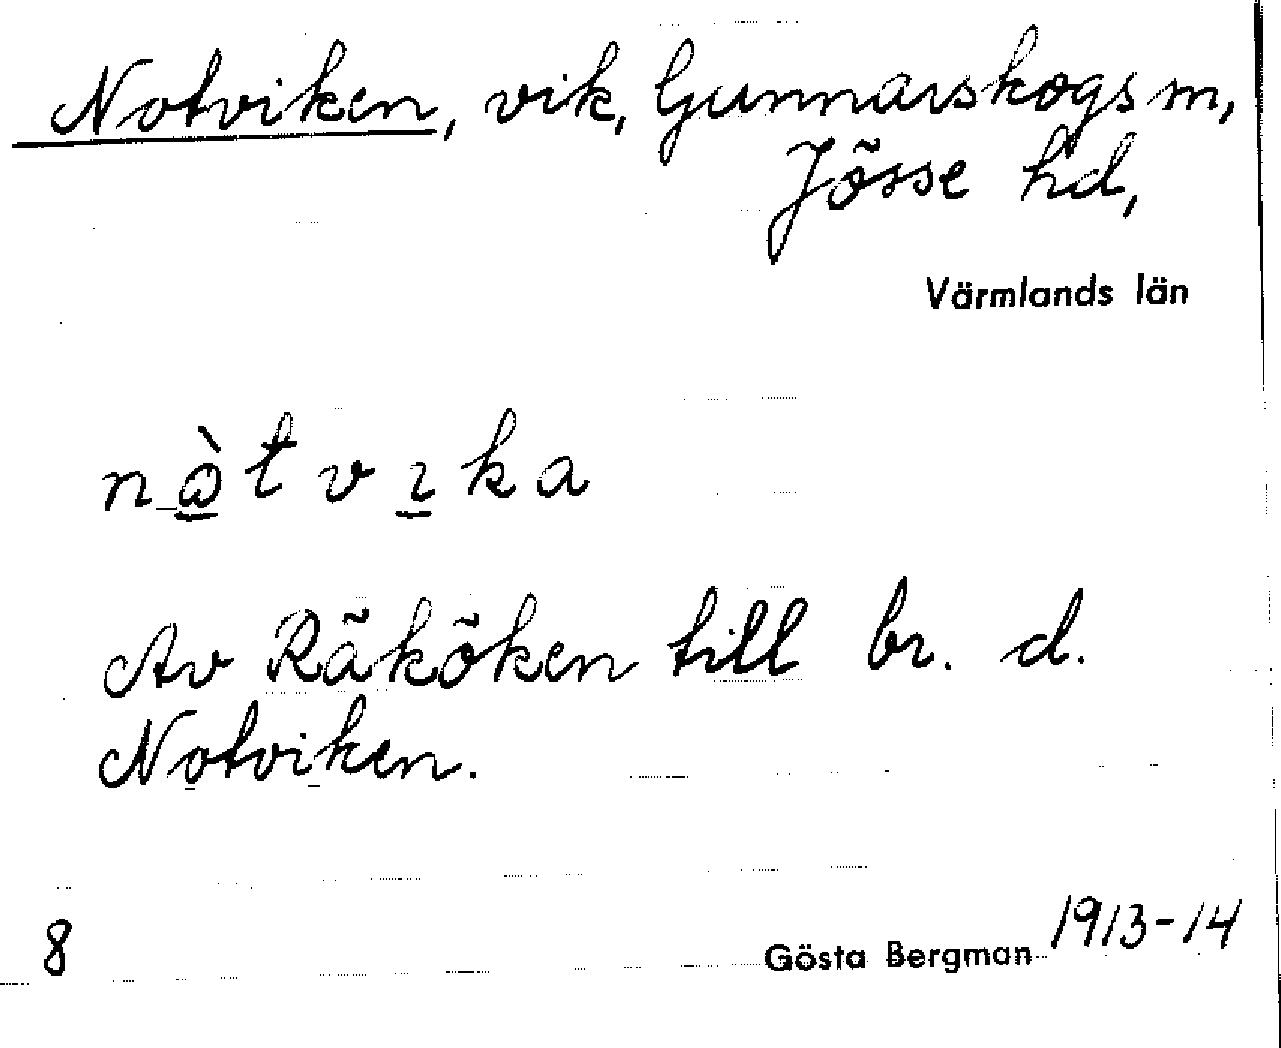 Notviken, vik, Gunnarskogs m,
Jösse hd,
Värmlands län
nὼtvıka
Av Räköken till br. d.
Notviken.
8 Gösta Bergman 1913-14